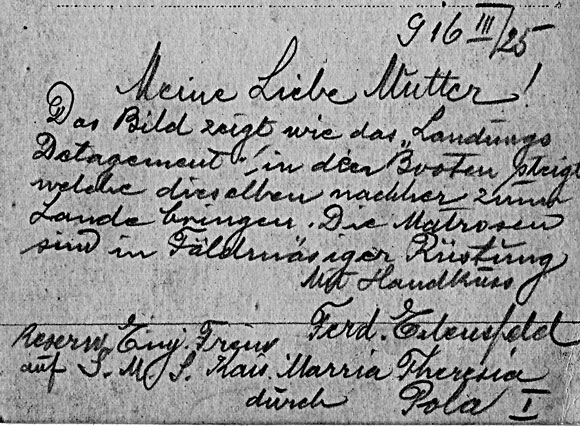 916 III/25
Meine Liebe Mutter!
Das Bild zeigt wie das „Landungs
Detagement" in den Booten steigt
welche dieselben nachher zum
Lande bringen. Die Matrosen
sind in Fäldmäsiger Rüstung
Mit Handkuss
Ferd.
Reserv. Einj. Freiw
auf S. M. S. Kais. Marria Theresia
durch Pola I